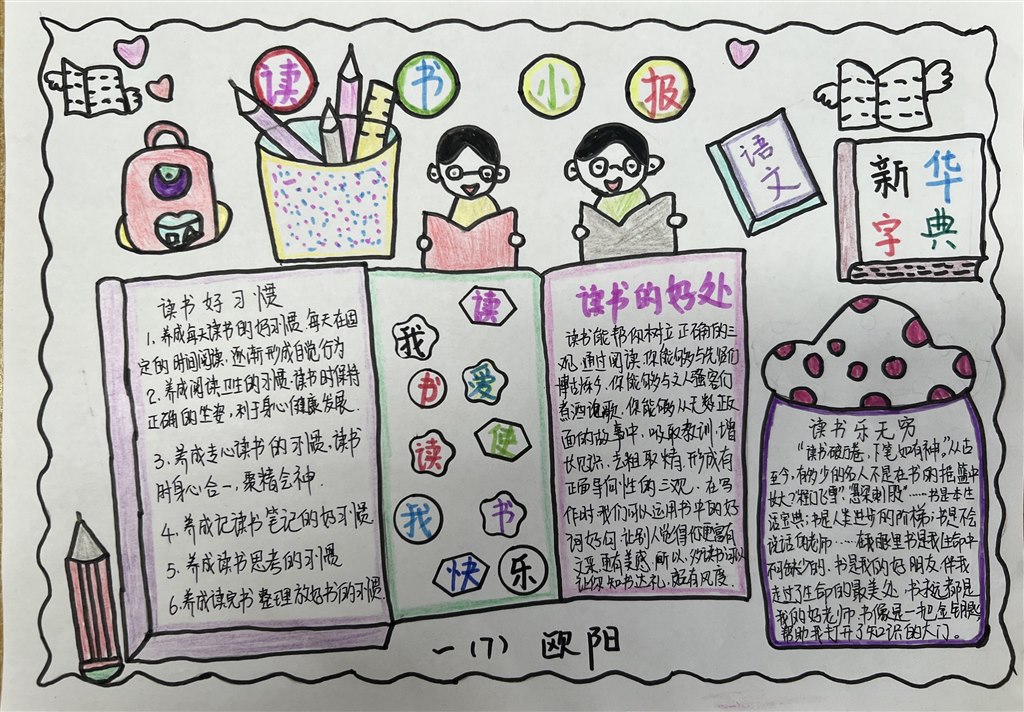 读书小报
语文
新华
字典
读书好习惯
1.养成每天读书的好习惯.每天在固
定的时间阅读.逐渐形成自觉行为
2.养成阅读卫生的习惯.读书时保持
正确的坐姿,利于身心健康发展.
3.养成专心读书的习惯,读书
时身心合一,聚精会神.
4.养成记读书笔记的好习惯
5.养成读书思考的习惯
6.养成读完书整理放好书的习惯
我读
书爱
读使
我书
快乐
读书的好处
读书能帮你树立正确的三
观.通过阅读.你能够与先贤们
博古除今.你能够与文人骚客们
煮酒论歌.你能够从无数正反
面的故事中,吸取教训,增
长见识,去粗取精.形成有
正面导向性的三观.在写
作时我们可以运用书中的好
词好句.让别人觉得你更富有
文采.更有美感.所以,多读书可以
让你知书达礼,颇有风度
读书乐无穷
“读书破万卷,下笔如有神”.从古
至今,有多少的名人不是在书的摇篮中
长大?“程门飞雪”,“悬梁刺股”……书是本生
活宝典;书是人类进步的阶梯;书是不会
说话的老师……在我眼里书是我生命中
不可缺少的.书是我的好朋友伴我
走过了生命的最美处,书永远都是
我的好老师.书像是一把金钥匙
帮助我打开了知识的大门。
一(7) 欧阳